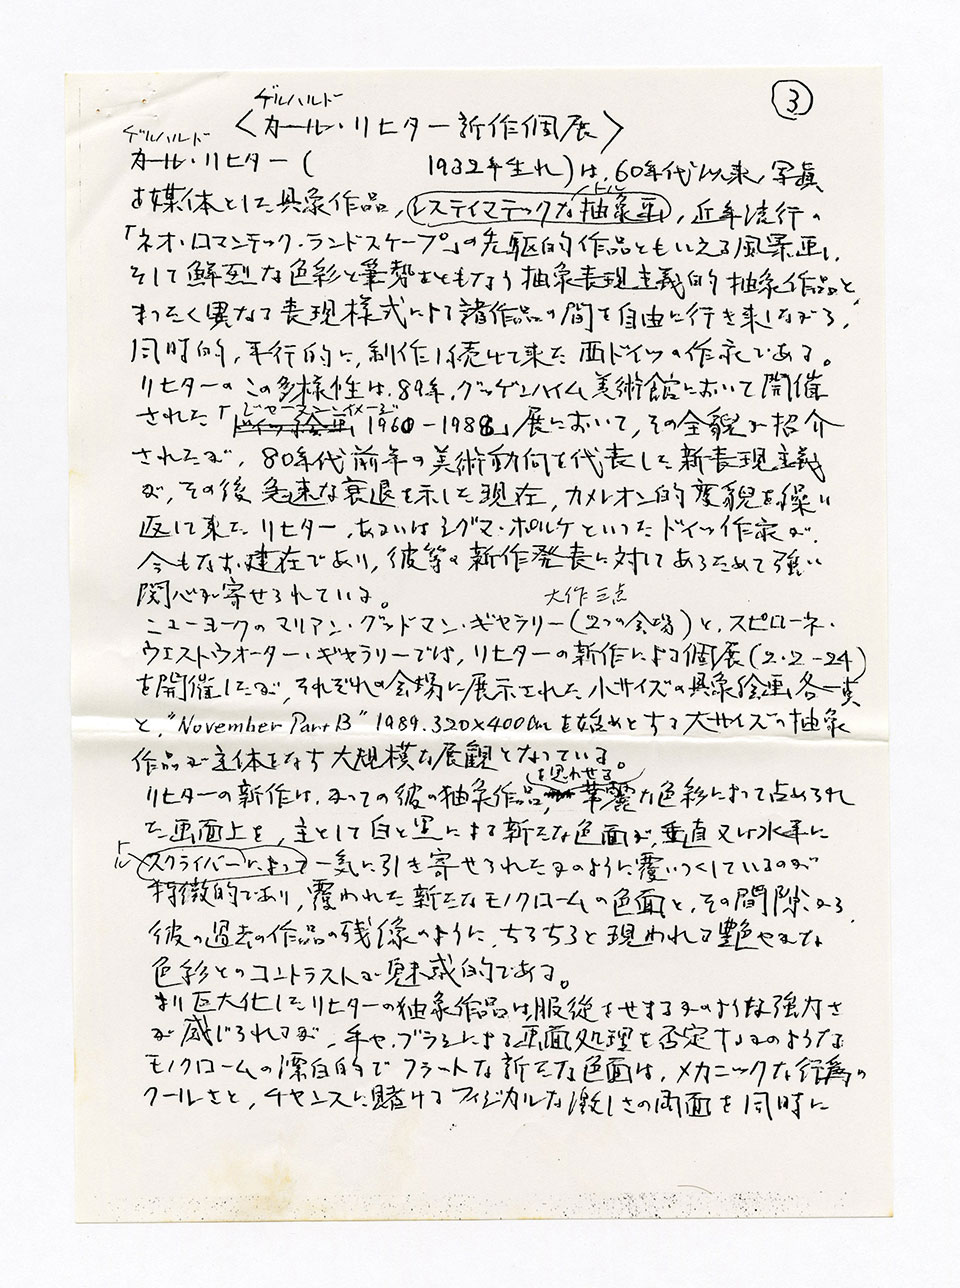 ③
ゲルハルト
〈カール・リヒター新作個展〉
ゲルハルト
カール・リヒター( 1932年生れ)は、60年代以来、写真
を媒体とした具象作品、システィマテックな抽象画、近年流行の
トル
「ネオ・ロマンテック・ランドスケープ」の先駆的作品ともいえる風景画、
そして鮮烈な色彩と筆勢をともなう抽象表現主義的抽象作品と、
まったく異なる表現様式による諸作品の間を自由に行き来しながら、
同時的、平行的に、制作を続けて来た西ドイツの作家である。
リヒターのこの多様性は、89年、グッゲンハイム美術館において開催
された「ドイツ絵画 1960-1988」展において、その全貌が紹介
されたが、80年代前半の美術動向を代表した新表現主義
が、その後急速な衰退を示した現在、カメレオン的変貌を繰り
返して来たリヒター、あるいはシグマ・ポルケといったドイツ作家が、
今もなお健在であり、彼等の新作発表に対してあらためて強い
関心が寄せられている。
大作三点
ニューヨークのマリアン・グッドマン・ギャラリー(2つの会場)と、スピローネ・
ウェストウオーター・ギャラリーでは、リヒターの新作による個展(2・2-24)
を開催したが、それぞれの会場に展示された小サイズの具象絵画各一点
と、"November Part B" 1989. 320×400cmを始めとする大サイズの抽象
作品が主体をなす大規模な展観となっている。
を思わせる
リヒターの新作は、かっての彼の抽象作品、華麗な色彩によって占められ
た画面上を、主として白と黒による新たな色面が、垂直又は水平に
トル
スクライバーによって一気に引き寄せられたかのように覆いつくしているのが
特徴的であり、覆われた新たなモノクロームの色面と、その間隙から
彼の過去の作品の残像のように、ちらちらと現われる艶やかな
色彩とのコントラストが魅惑的である。
より巨大化したリヒターの抽象作品は、服従させるかのような強力さ
が感じられるが、手や、ブラシによる画面処理を否定するかのような
モノクロームの漂白的でフラットな新たな色面は、メカニックな行為の
クールさと、チャンスに賭けるフィジカルな激しさの両面を同時に